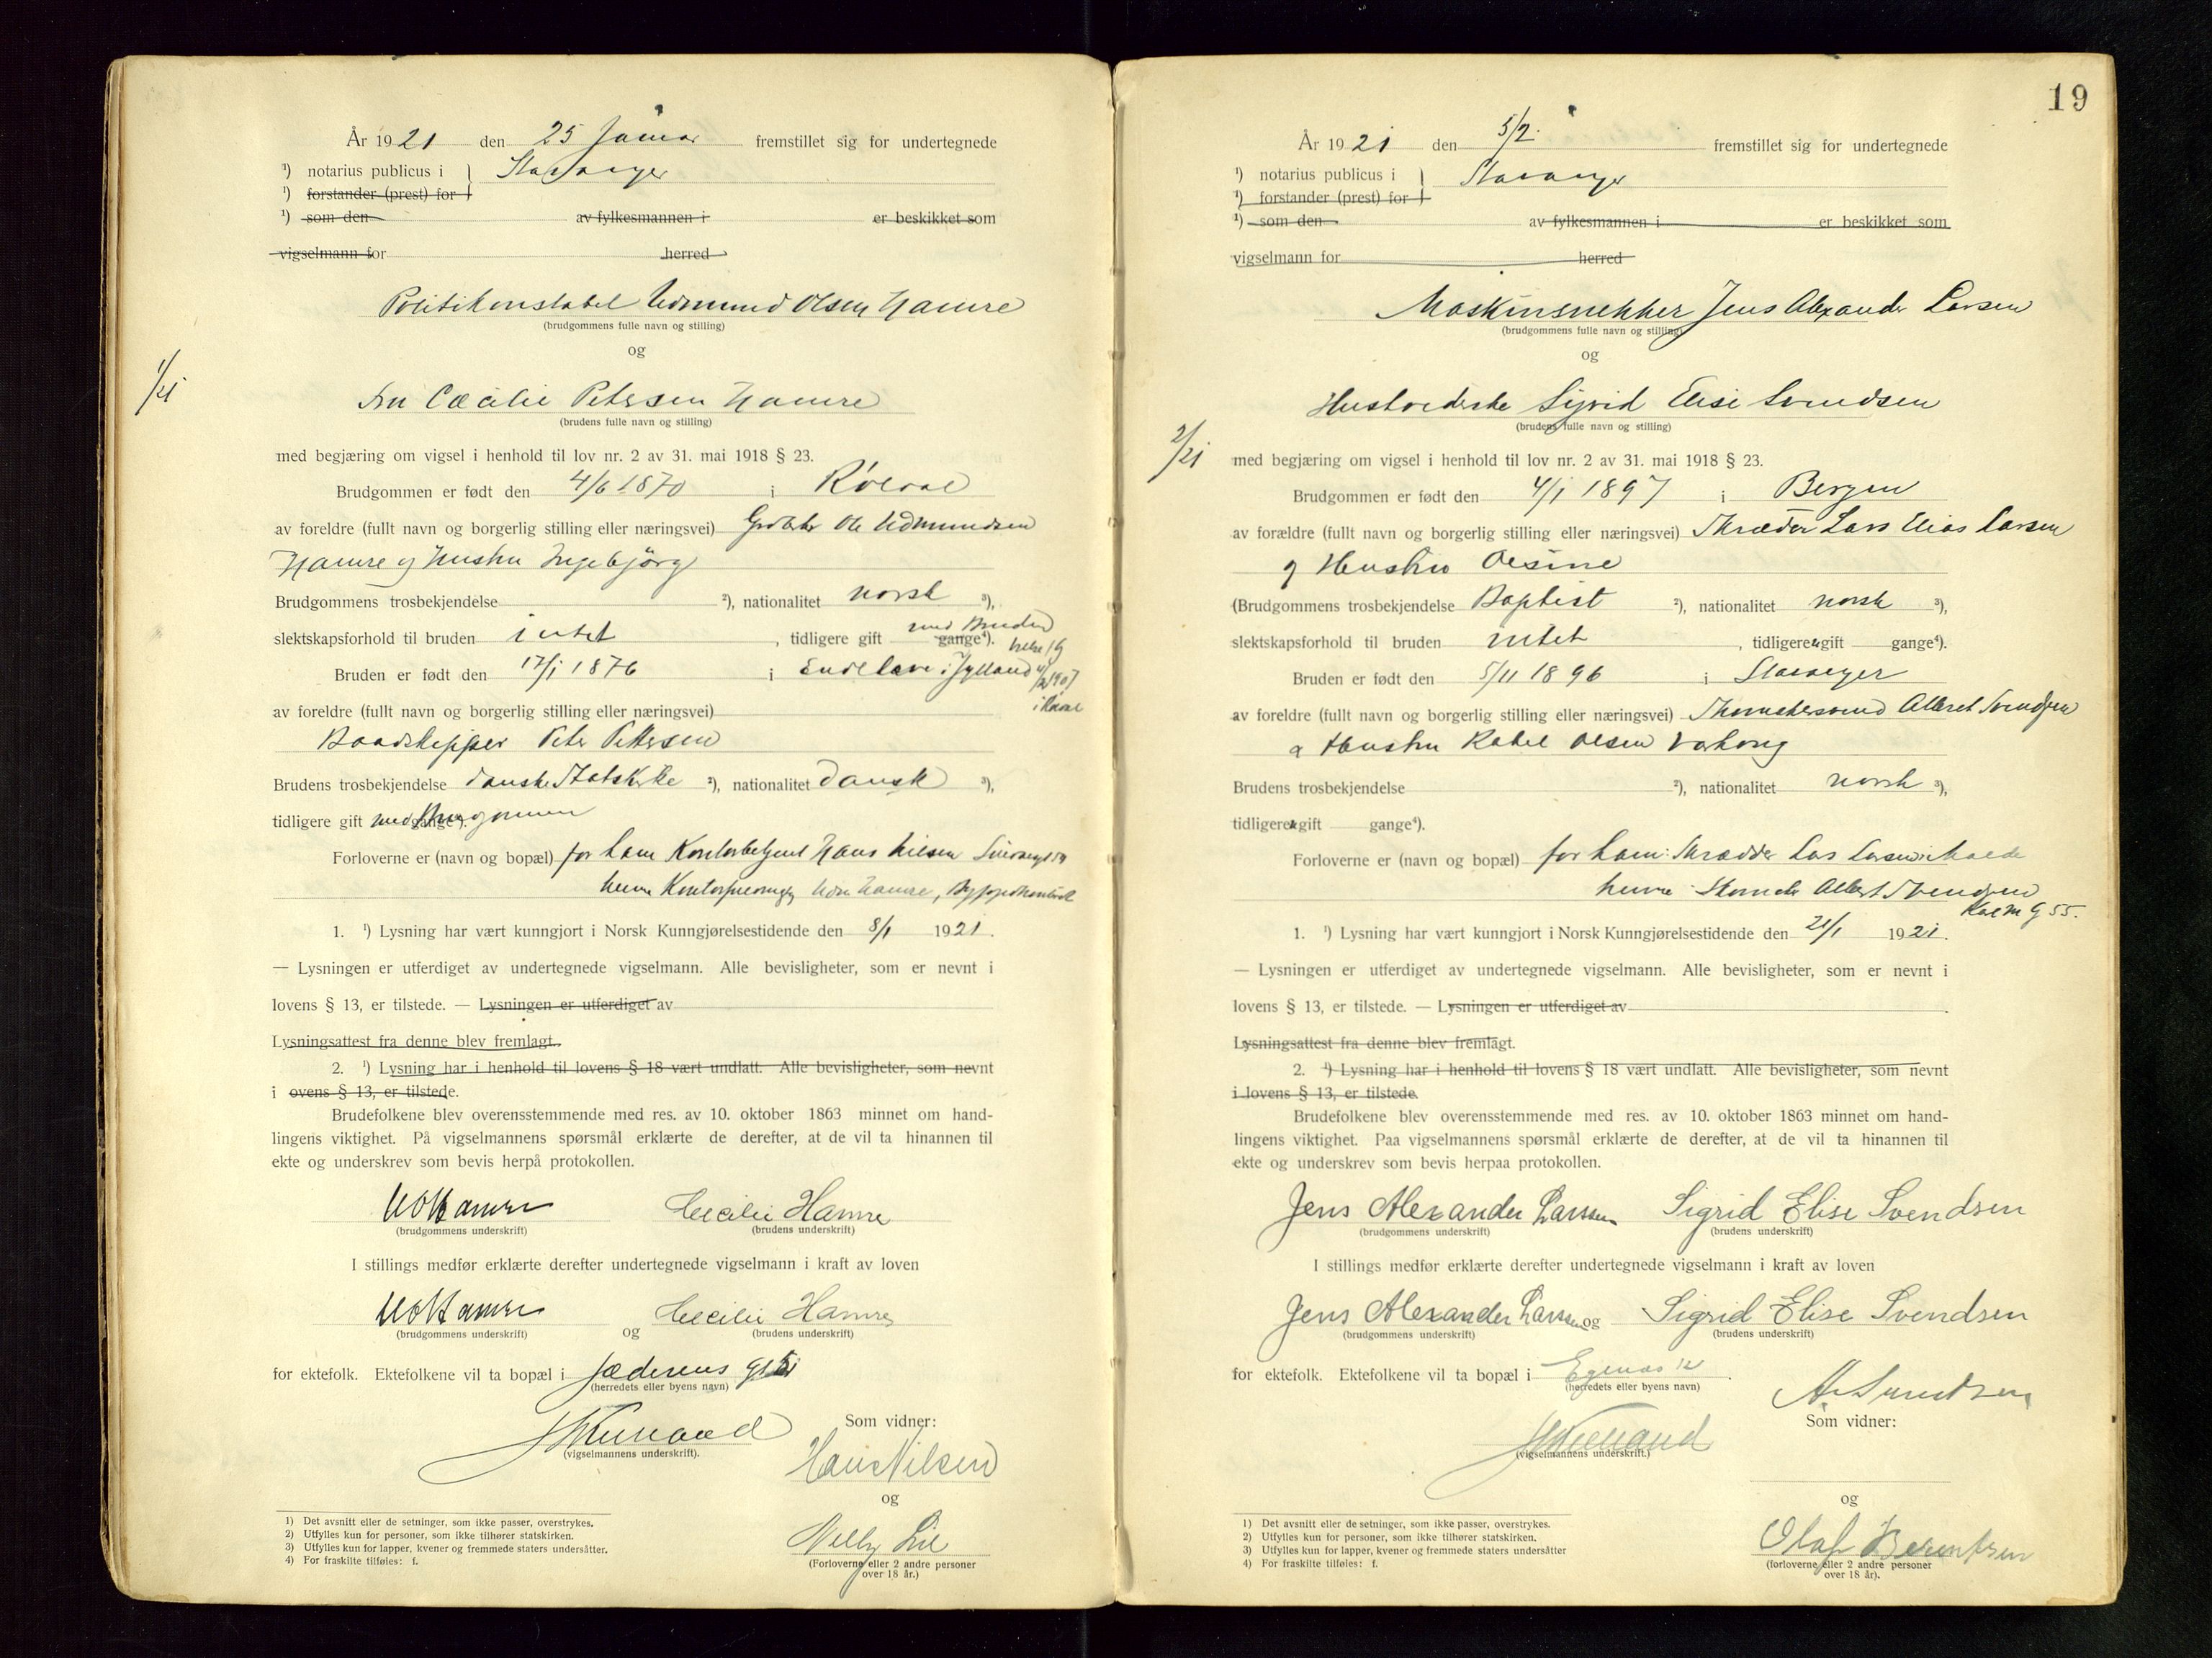 År 1921 den 25 Januar fremstillet sig for undertegnede
¹) notarius publicus i } Stavanger
¹) forstander (prest) for
¹) som den av fylkesmannen i er beskikket som
vigselmann for herred
Politikonstabel Udmund Olsen Hamre
(brudgommens fulle navn og stilling)
og
1/21
Fru Cæcilie Petersen Hamre
(brudens fulle navn og stilling)
med begjæring om vigsel i henhold til lov nr. 2 av 31. mai 1918 § 23.
Brudgommen er født den 4/6 1870 i
av foreldre (fullt navn og borgerlig stilling eller næringsvei) Ole Udmundsen
Hamre og Hustru Ingebjörg
Brudgommens trosbekjendelse ²), nationalitet norsk ³),
slektskapsforhold til bruden intet , tidligere gift med Bruden gange⁴).
Bruden er født den 17/1 1876 i Endelave i Jylland
av foreldre (fullt navn og borgerlig stilling eller næringsvei)
Baadskipper Peter Pettersen
Brudens trosbekjendelse danske Statskirke ²), nationalitet dansk ³),
tidligere gift med Brudgommen gange⁴).
Forloverne er (navn og bopæl) for ham Kontorbetjent Hans Nilsen
henne
1. ¹) Lysning har vært kunngjort i Norsk Kunngjørelsestidende den 8/1 1921.
— Lysningen er utferdiget av undertegnede vigselmann. Alle bevisligheter, som er nevnt i
lovens § 13, er tilstede. — Lysningen er utferdiget av
Lysningsattest fra denne blev fremlagt.
2. ¹) Lysning har i henhold til lovens § 18 vært undlatt. Alle bevisligheter, som nevnt
i ovens § 13, er tilstede.
Brudefolkene blev overensstemmende med res. av 10. oktober 1863 minnet om hand-
lingens viktighet. På vigselmannens spørsmål erklærte de derefter, at de vil ta hinannen til
ekte og underskrev som bevis herpå protokollen.
UOHamre Cecilie Hamre
(brudgommens underskrift) (brudens underskrift)
I stillings medfør erklærte derefter undertegnede vigselmann i kraft av loven
UOHamre og Cecilie Hamre
(brudgommens underskrift) (brudens underskrift)
for ektefolk. Ektefolkene vil ta bopæl i Jæderens
(herredets eller byens navn)
Som vidner:
(vigselmannens underskrift).
Hans Nilsen
og
Nelly Lie
(Forloverne eller 2 andre personer
over 18 år.)
1) Det avsnitt eller de setninger, som ikke passer, overstrykes.
2) Utfylles kun for personer, som ikke tilhører statskirken.
3) Utfylles kun for lapper, kvener og fremmede staters undersåtter.
4) For fraskilte tilføies: f.
19
År 1921 den 5/2. fremstillet sig for undertegnede
¹) notarius publicus i } Stavanger
¹) forstander (prest) for
¹) som den av fylkesmannen i er beskikket som
vigselmann for herred
Maskinsnekker Jens Alexander Larsen
(brudgommens fulle navn og stilling)
og
Husholderske Sigrid Elise Svendsen
(brudens fulle navn og stilling)
2/21
med begjæring om vigsel i henhold til lov nr. 2 av 31. mai 1918 § 23.
Brudgommen er født den 4/1 1897 i Bergen
av forældre (fullt navn og borgerlig stilling eller næringsvei) Skræder Lars Elias Larsen
og Hustru Olsine
(Brudgommens trosbekjendelse Baptist ²), nationalitet norsk ³),
slektskapsforhold til bruden intet , tidligere gift gange⁴).
Bruden er født den 5/11 1896 i Stavanger
av foreldre (fullt navn og borgerlig stilling eller næringsvei) Albert Svendsen
og Hustru Rakel Olsen
Brudens trosbekjendelse ²), nationalitet norsk ³),
tidligere gift gange⁴).
Forloverne er (navn og bopæl) for ham: Skrædder Lars Larsen
henne Albert Svendsen
1. ¹) Lysning har vært kunngjort i Norsk Kunngjørelsestidende den 21/1 1921.
— Lysningen er utferdiget av undertegnede vigselmann. Alle bevisligheter, som er nevnt i
lovens § 13, er tilstede. — Lysningen er utferdiget av
Lysningsattest fra denne blev fremlagt.
2. ¹) Lysning har i henhold til lovens § 18 vært undlatt. Alle bevisligheter, som nevnt
i lovens § 13, er tilstede.
Brudefolkene blev overensstemmende med res. av 10. oktober 1863 minnet om hand-
lingens viktighet. Paa vigselmannens spørsmål erklærte de derefter, at de vil ta hinannen til
ekte og underskrev som bevis herpaa protokollen.
Jens Alexander Larssen Sigrid Elise Svendsen
(brudgommens underskrift) (brudens underskrift)
I stillings medfør erklærte derefter undertegnede vigselmann i kraft av loven
Jens Alexander Larssen og Sigrid Elise Svendsen
(brudgommens underskrift) (brudens underskrift)
for ektefolk. Ektefolkene vil ta bopæl i Egenes 12 .
(herredets eller byens navn)
Som vidner:
(vigselmannens underskrift.)
og
Olaf Berentsen
(forloverne eller 2 andre personer
over 18 år).
1) Det avsnitt eller de setninger, som ikke passer, overstrykes.
2) Utfylles kun for personer, som ikke tilhører statskirken.
3) Utfylles kun for lapper, kvener og fremmede staters undersåtter
4) For fraskilte tilføies: f.